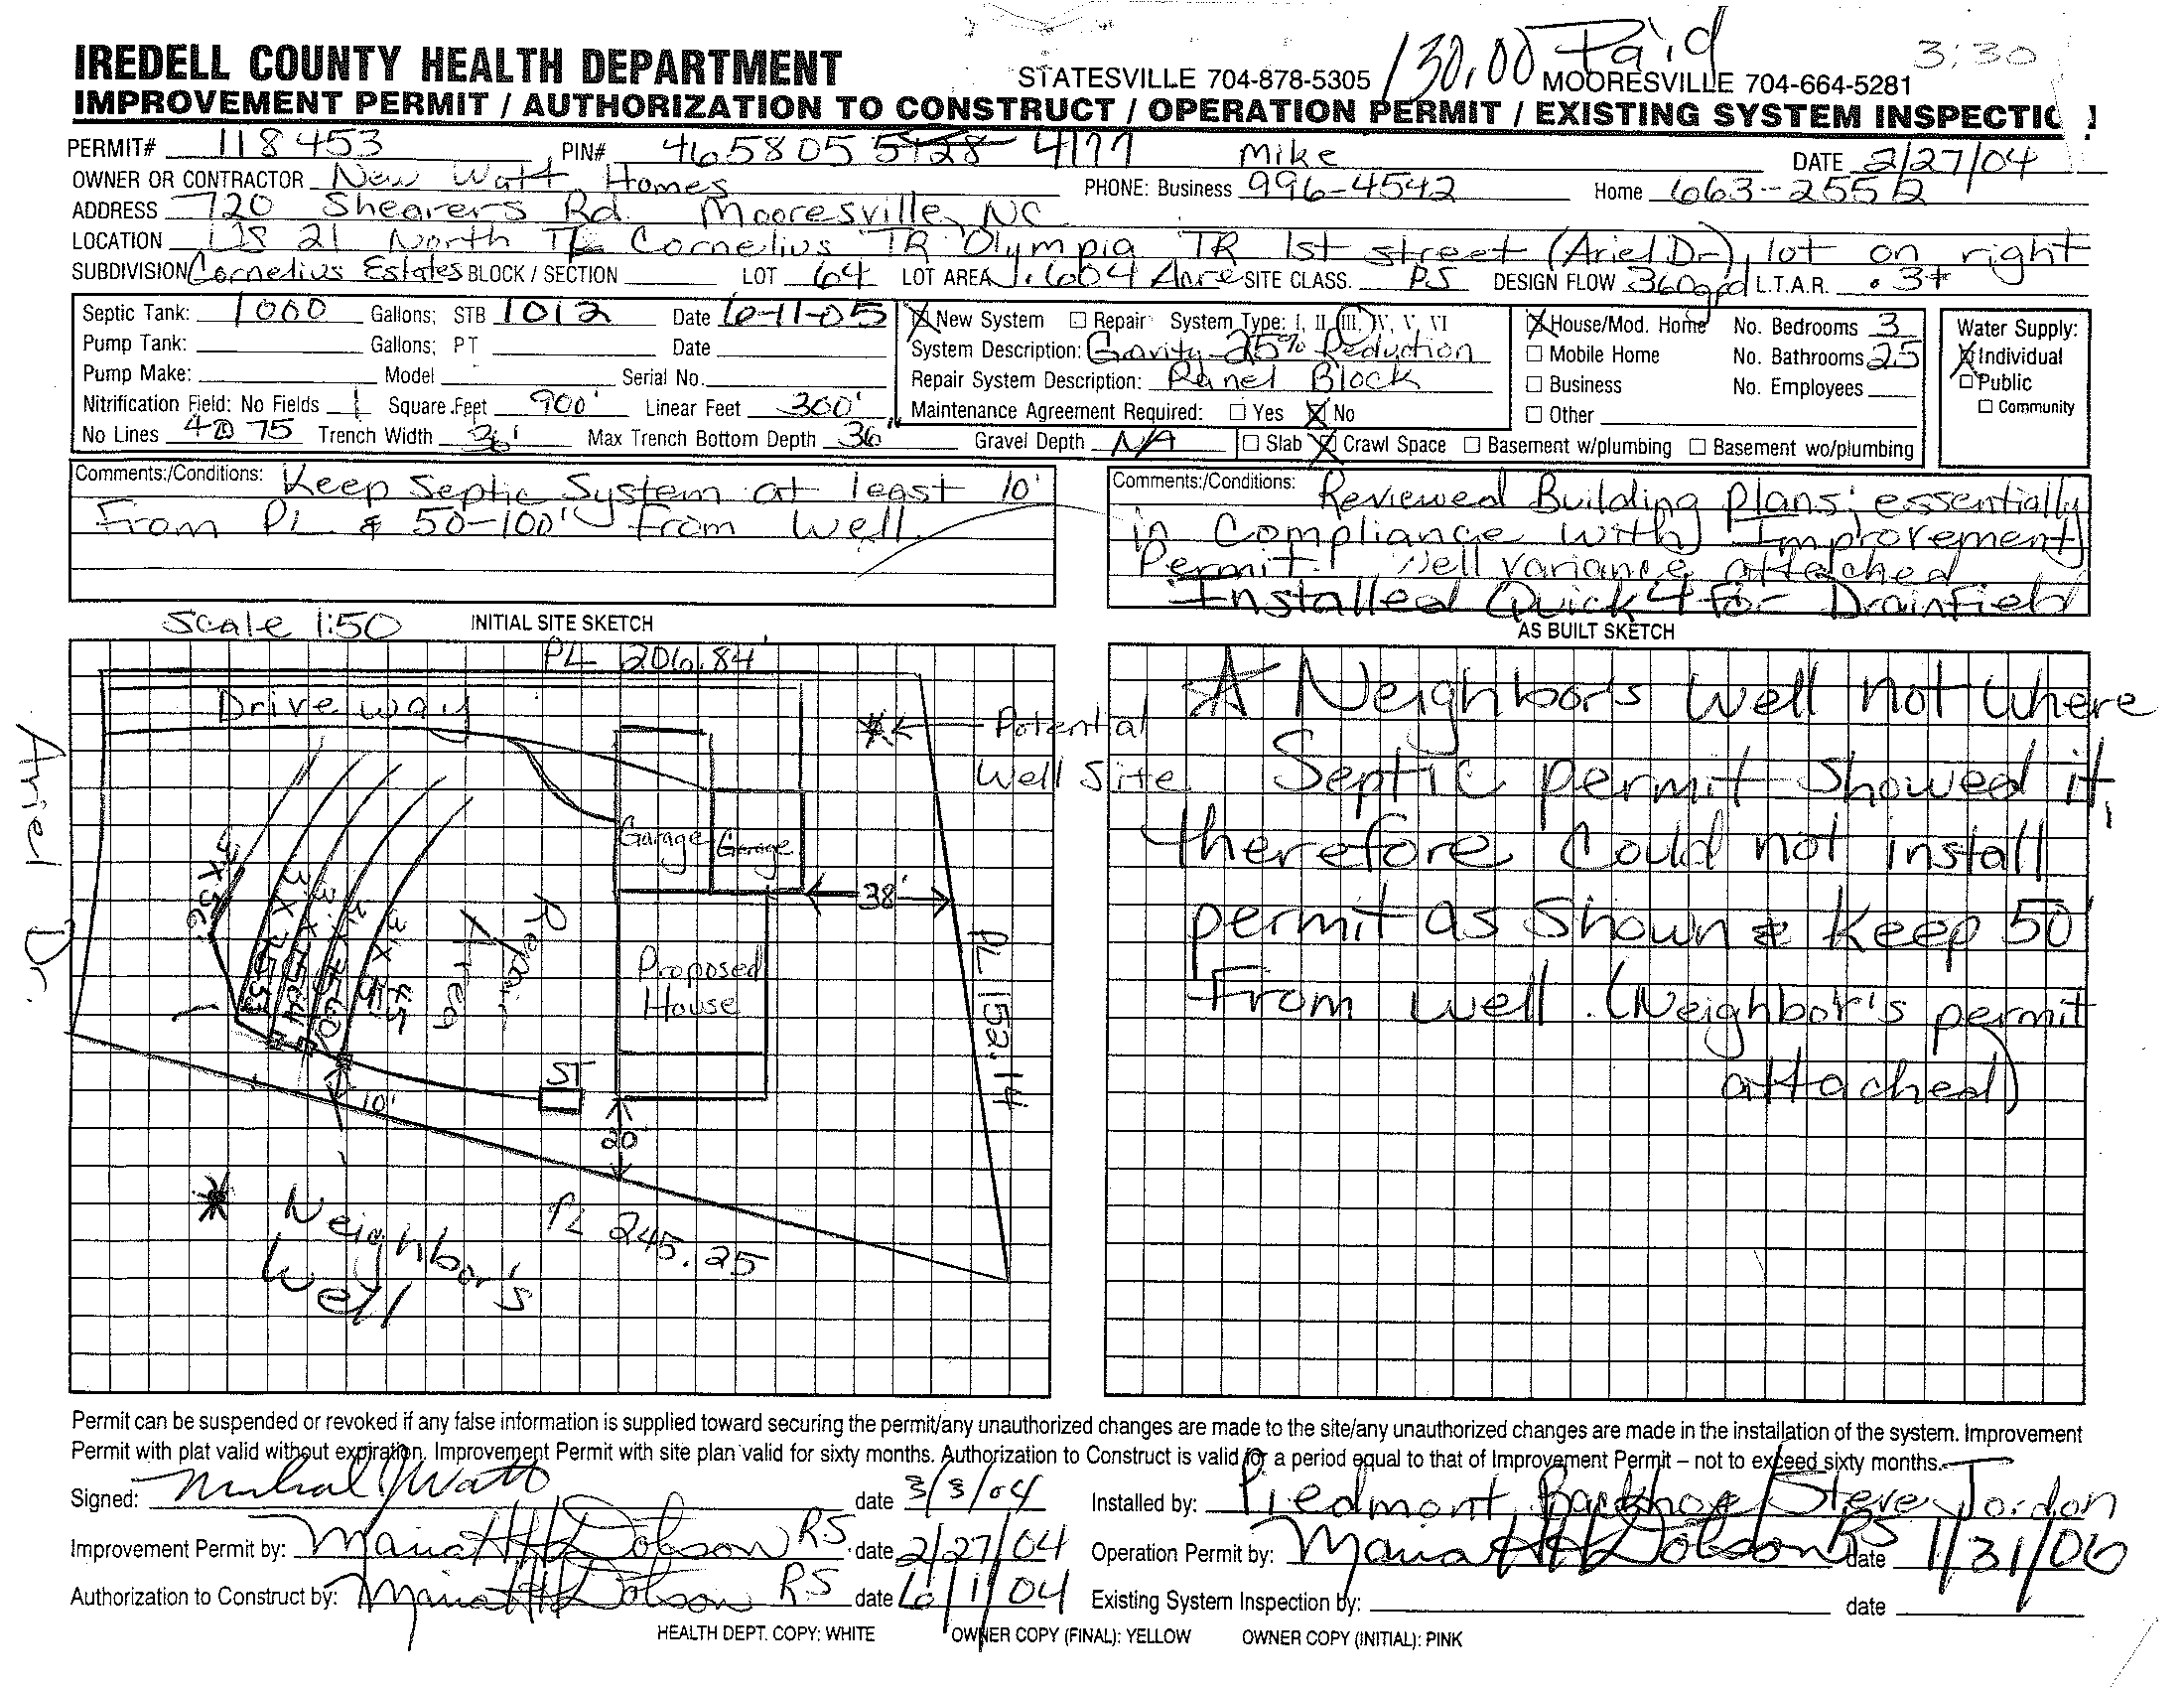 130.00 Paid
3:30
IREDELL COUNTY HEALTH DEPARTMENT STATESVILLE 704-878-5305 MOORESVILLE 704-664-5281
IMPROVEMENT PERMIT / AUTHORIZATION TO CONSTRUCT / OPERATION PERMIT / EXISTING SYSTEM INSPECTIO
PERMIT# 118453 PIN# 4658055128 4177 Mike DATE 2/27/04
OWNER OR CONTRACTOR New Watt Homes PHONE: Business 996-4542 Home 663-2552
ADDRESS 720 Shearers Rd. Mooresville, NC
LOCATION US 21 North TL Cornelius TR Olympia TR 1st street (Ariel Dr), lot on right
SUBDIVISION Cornelius Estates BLOCK / SECTION LOT 64 LOT AREA 1.604 Acre SITE CLASS. PS DESIGN FLOW 360gpd L.T.A.R. .3+
Septic Tank: 1000 Gallons; STB 1012 Date 6-11-05
Pump Tank: Gallons; PT Date
Pump Make: Model Serial No.
Nitrification Field: No Fields 1 Square Feet 900' Linear Feet 300'
No Lines 4@75 Trench Width 36' Max Trench Bottom Depth 36" Gravel Depth N/A
New System Repair System Type: I, II, III, IV, V, VI
System Description: Gravity 25% Reduction
Repair System Description: Panel Block
Maintenance Agreement Required: Yes No
Slab Crawl Space Basement w/plumbing Basement wo/plumbing
House/Mod. Home No. Bedrooms 3
Mobile Home No. Bathrooms 2.5
Business No. Employees
Other
Water Supply:
Individual
Public
Community
Comments:/Conditions: Keep Septic System at least 10'
From PL & 50-100' From Well.
Comments:/Conditions: Reviewed Building Plans; essentially
in Compliance with Improvement
Permit. Well variance attached
Installed Quick 4 for Drainfield
Scale 1:50 INITIAL SITE SKETCH
PL 206.84'
Driveway
Potential
Well Site
Ariel Dr.
Garage Garage
38'
Repair
Area
Proposed
House
PL 152.14
ST
10'
20'
Neighbor's
Well
PL 245.25
AS BUILT SKETCH
A Neighbors Well not where
Septic permit showed it,
therefore Could not install
permit as shown & Keep 50'
From well. (Neighbor's permit
attached)
Permit can be suspended or revoked if any false information is supplied toward securing the permit/any unauthorized changes are made to the site/any unauthorized changes are made in the installation of the system. Improvement
Permit with plat valid without expiration. Improvement Permit with site plan valid for sixty months. Authorization to Construct is valid for a period equal to that of Improvement Permit – not to exceed sixty months.
Signed: Michael J Watt date 3/3/04 Installed by: Piedmont Backhoe/Steve Jordon
Improvement Permit by: Maria H Dobson RS date 2/27/04 Operation Permit by: Maria H Dobson RS date 1/31/06
Authorization to Construct by: Maria H Dobson RS date 6/1/04 Existing System Inspection by: date
HEALTH DEPT. COPY: WHITE OWNER COPY (FINAL): YELLOW OWNER COPY (INITIAL): PINK